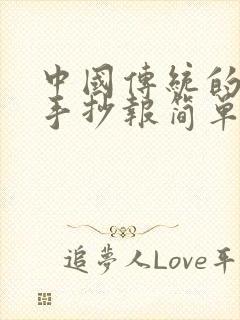 中國傳統的
手抄報简单
追夢人Love平